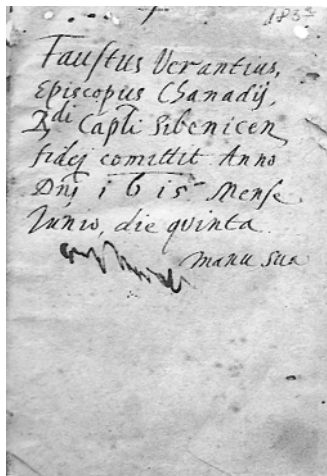 183
Faustus Verantius,
Episcopus Chanadij,
Rdi Capli Sibenicen
fidej comittit Anno
Dnj 1615 Mense
Iunio, die quinta
manu sua